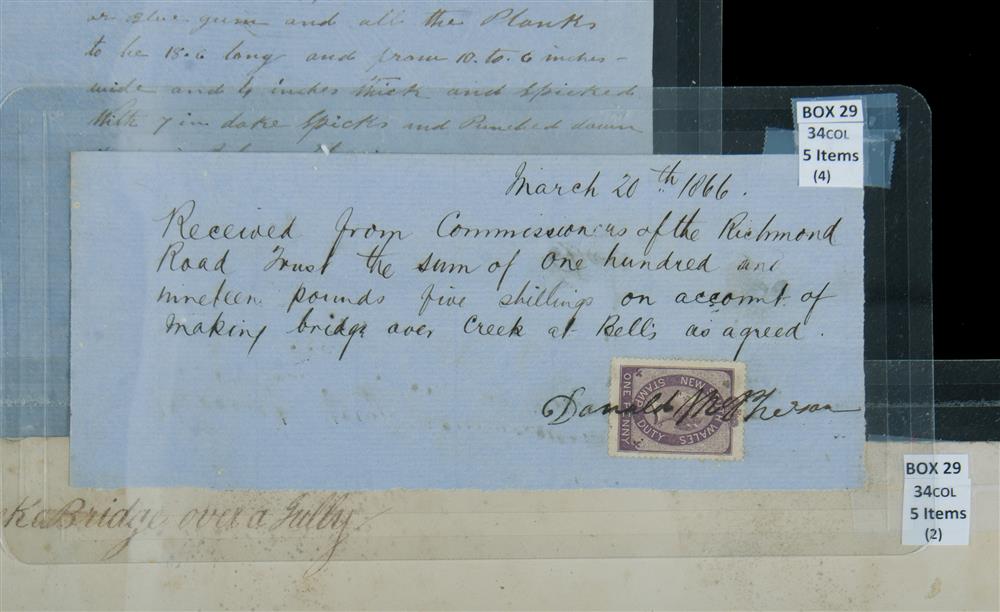 or Blue gum and all the Planks
to be 18.6 long and from 10. to. 6 inches
wide and 4 inches thick and Spicked
With 7 in dake Spicks and Punched down
BOX 29
34COL
5 Items
(4)
March 20th 1866.
Received from Commissioners of the Richmond
Road Trust the sum of One hundred and
nineteen pounds five shillings on account of
making bridge over Creek at Bells as agreed.
Donald McPherson
NEW WALES
STAMP DUTY
ONE PENNY
BOX 29
34COL
5 Items
(2)
Bridge over a Gully